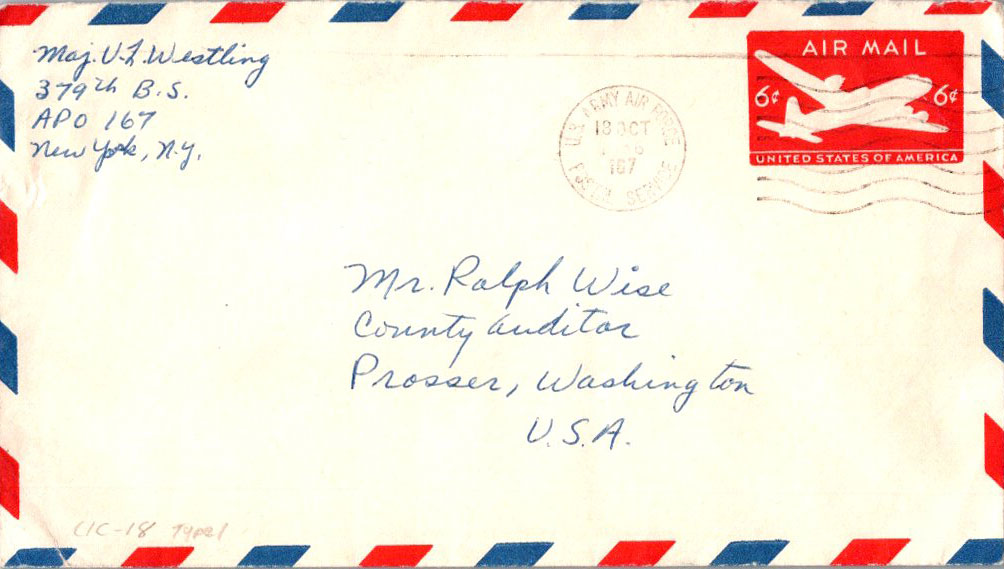 Maj. V. L. Westling
379th B.S.
APO 167
New York, N.Y.
U.S. ARMY AIR FORCE
18 OCT
167
POSTAL SERVICE
AIR MAIL
6¢ 6¢
UNITED STATES OF AMERICA
Mr. Ralph Wise
County Auditor
Prosser, Washington
U.S.A.
UC-18 Type 1